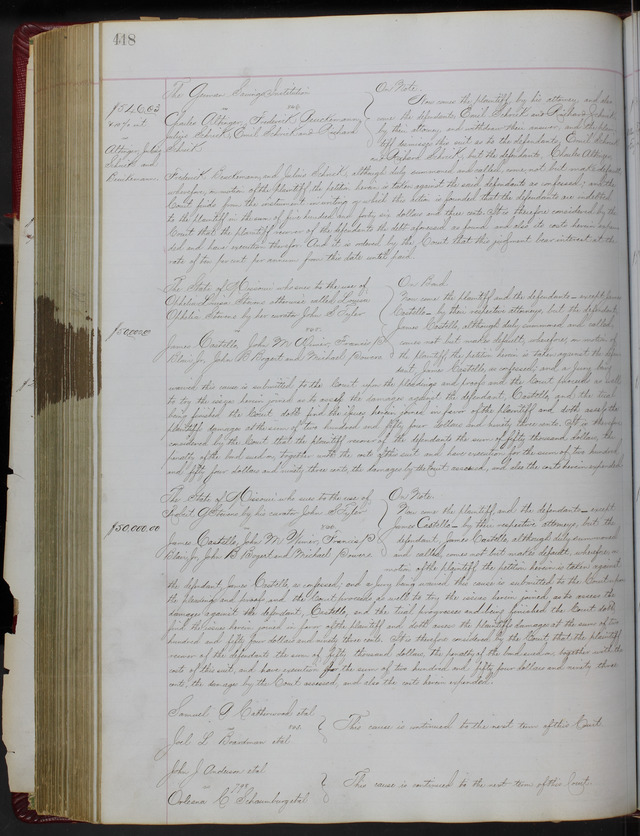 418
The German Savings Institution
vs.
Charles Altinger, Frederick Brockmann,
Julius Schrick, Emil Schrick and Richard
Schrick.
$546.03
10% int
Altinger, Julius
Schrick and
Brockmann.
On Note.
Now comes the plaintiff by his attorney, and also
come the defendants Emil Schrick and Richard Schrick,
by their attorney, and withdraw their answer, and the plain-
tiff dismisses this suit as to the defendants, Emil Schrick
and Richard Schrick, but the defendants, Charles Altinger,
Frederick Brockmann, and Julius Schrick, although duly summoned and called, come not but make default,
wherefore, on motion of the plaintiff the petition herein is taken against the said defendants as confessed; and the
Court finds from the instrument in writing on which the petition is founded that the defendants are indebted
to the plaintiff in the sum of five hundred and forty six dollars and three cents. It is therefore considered by the
Court that the plaintiff recover of the defendants the debt aforesaid as found and also its costs herein expen-
ded and have execution therefor. And it is ordered by the Court that this judgment bear interest at the
rate of ten per cent per annum from this date until paid.
The State of Missouri who sues to the use of
Ophelia Louisa Stevens otherwise called Louisa
Ophelia Stevens by her curator John S. Tyler
vs.
James Castello, John M. Wimer, Francis P.
Blair Jr., John B. Bogert and Michael Powers
$50,000.00
On Bond.
Now come the plaintiff and the defendants - except James
Castello - by their respective attorneys, but the defendant,
James Castello, although duly summoned and called,
comes not but makes default; wherefore, on motion of
the plaintiff the petition herein is taken against the defen-
dant, James Castello, as confessed; and a jury being
waived this cause is submitted to the Court upon the pleadings and proofs and the Court proceeds as well
to try the issues herein joined as to assess the damages against the defendant, Castello, and the trial
being finished the Court doth find the issues herein joined in favor of the plaintiff and doth assess the
plaintiffs damages at the sum of two hundred and fifty four dollars and ninety three cents. It is therefore
considered by the Court that the plaintiff recover of the defendants the sum of fifty thousand dollars, the
penalty of the bond sued on, together with the costs of this suit and have execution for the sum of two hundred
and fifty four dollars and ninety three cents, the damages by the Court assessed, and also the costs herein expended.
The State of Missouri who sues to the use of
Robert G. Stevens by his curator John S. Tyler
vs.
James Castello, John M. Wimer, Francis P.
Blair Jr., John B. Bogert and Michael Powers
$50,000.00
On Note.
Now come the plaintiff and the defendants - except
James Castello - by their respective attorneys, but the
defendant, James Castello, although duly summoned
and called, comes not but makes default: wherefore, on
motion of the plaintiff the petition herein is taken against
the defendant, James Castello, as confessed; and a jury being waived, this cause is submitted to the Court upon
the pleadings and proofs and the Court proceeds as well to try the issues herein joined, as to assess the
damages against the defendant, Castello, and the trial progresses and being finished the Court doth
find the issues herein joined in favor of the plaintiff and doth assess the plaintiffs damages at the sum of two
hundred and fifty four dollars and ninety three cents. It is therefore considered by the Court that the plaintiff
recover of the defendants the sum of fifty thousand dollars, the penalty of the bond sued on, together with the
costs of this suit, and have execution for the sum of two hundred and fifty four dollars and ninety three
cents, the damages by the Court assessed, and also the costs herein expended.
Samuel G. Catherwood etal
vs.
Joel L. Boardman etal
This cause is continued to the next term of this Court.
John J. Anderson etal
vs.
Orleana C. Schaumburg etal
This cause is continued to the next term of this Court.